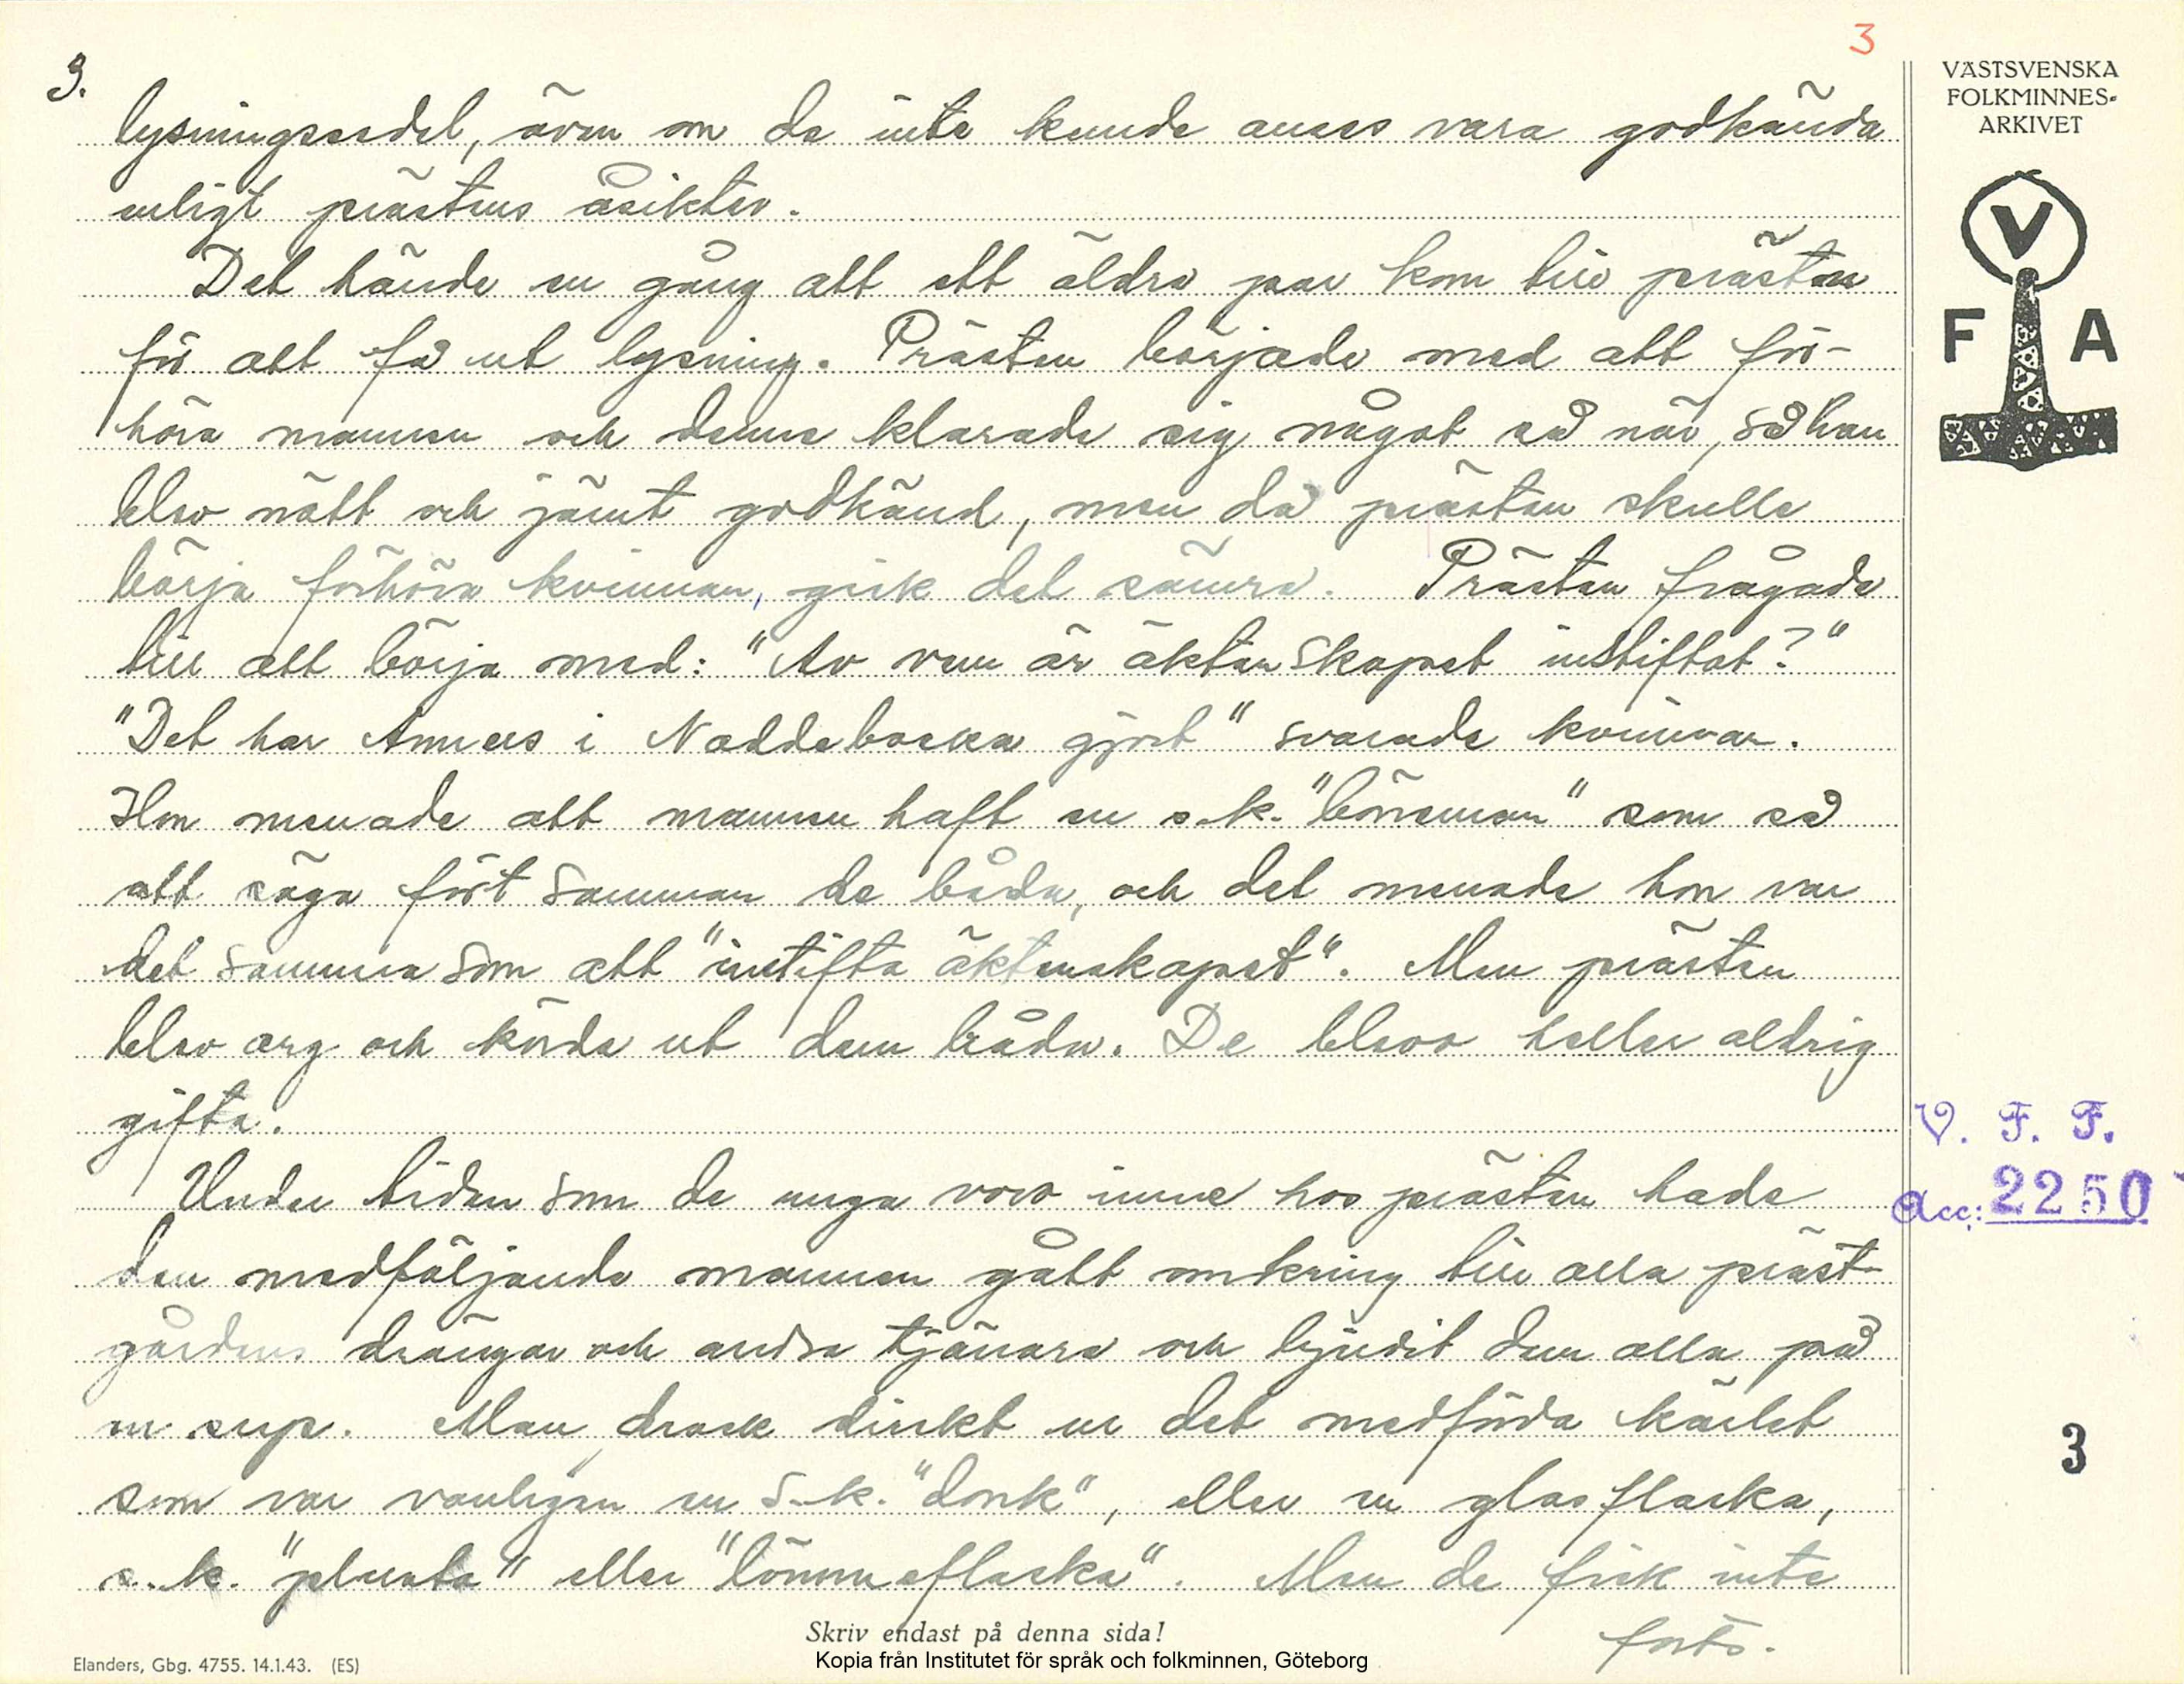 3
3.
lysningssedel, även om de inte kunde anses vara godkända
enligt prästens åsikter.
Det hände en gång att ett äldre par kom till prästen
för att få ut lysning. Prästen började med att för-
höra mannen och denne klarade sig något så när, så han
blev nätt och jämt godkänd, men då prästen skulle
börja förhöra kvinnan, gick det sämre. Prästen frågade
till att börja med: "Av vem är äktenskapet instiftat?"
"Det har Anners i gjort" svarade kvinnan.
Hon menade att mannen haft en s.k. "böneman" som så
att säga fört samman de båda, och det menade hon var
det samma som att "instifta äktenskapet". Men prästen
blev arg och körde ut dem båda. De blevo heller aldrig
gifta.
Under tiden som de unga voro inne hos prästen hade
den medföljande mannen gått omkring till alla präst-
gårdens drängar och andra tjänare och bjudit dem alla på
en sup. Man drack direkt ur det medförda kärlet
som var vanligen en s.k. "donk", eller en glasflaska,
s.k. "plunta" eller "lömmeflaska". Men de fick inte
forts.
VÄSTSVENSKA
FOLKMINNES-
ARKIVET
V
F A
V. F. F.
Acc: 2250
3
Skriv endast på denna sida!
Elanders, Gbg. 4755. 14.1.43. (ES)
Kopia från Institutet för språk och folkminnen, Göteborg